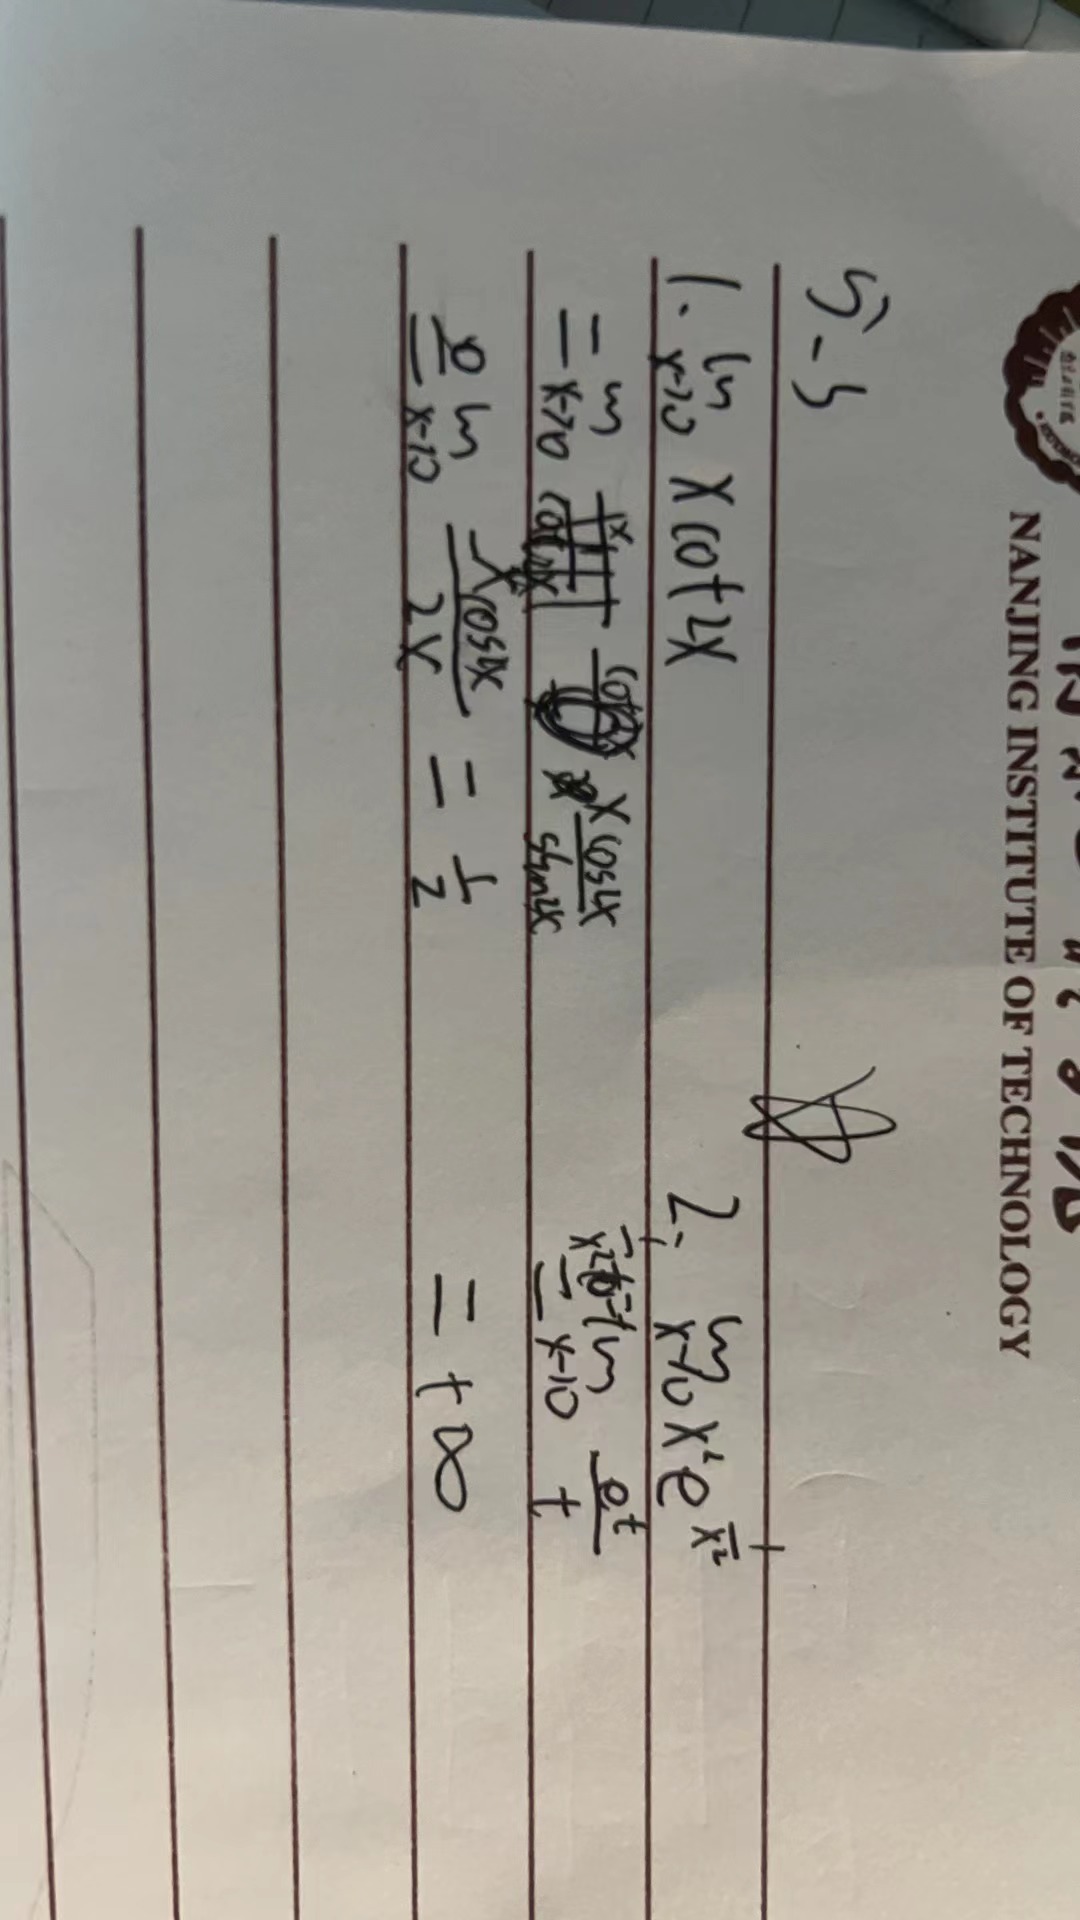 NANJING INSTITUTE OF TECHNOLOGY
5-5
1. lim x→0 x cot2x
= lim x→0 x cos2x/sin2x
= lim x→0 x cos2x/2x = 1/2
2. lim x→0 x² e^(1/x²)
1/x² = t lim x→0 e^t/t
= +∞